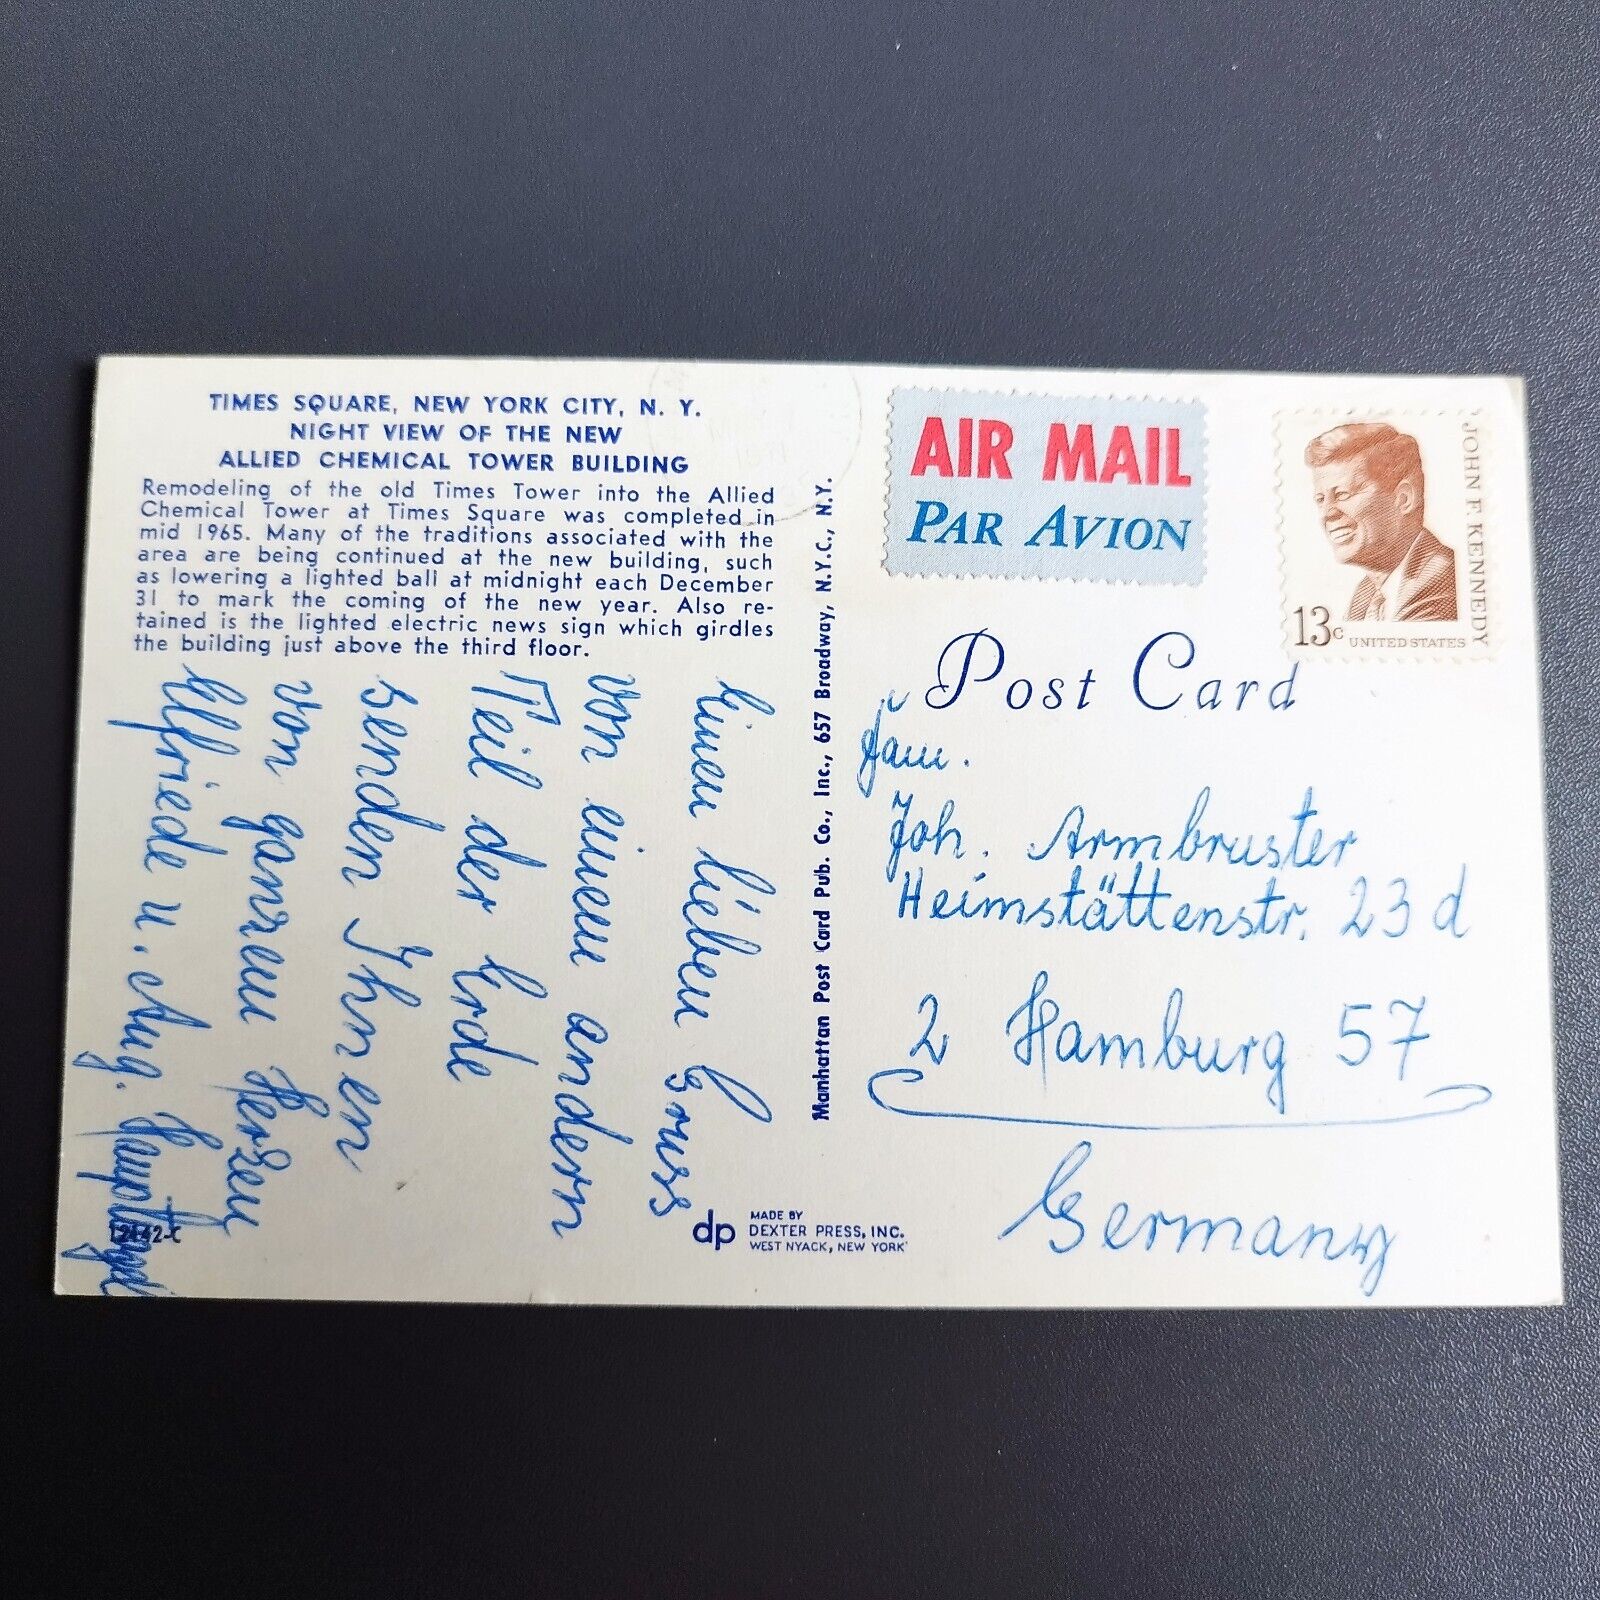 TIMES SQUARE, NEW YORK CITY, N. Y.
NIGHT VIEW OF THE NEW
ALLIED CHEMICAL TOWER BUILDING
Remodeling of the old Times Tower into the Allied
Chemical Tower at Times Square was completed in
mid 1965. Many of the traditions associated with the
area are being continued at the new building, such
as lowering a lighted ball at midnight each December
31 to mark the coming of the new year. Also re-
tained is the lighted electric news sign which girdles
the building just above the third floor.
Einen lieben Gruss
von einem andern
Teil der Erde
senden Ihnen
von ganzem Herzen
Elfriede u. Aug.
12442-C
dp
MADE BY
DEXTER PRESS, INC.
WEST NYACK, NEW YORK
Manhattan Post Card Pub. Co., Inc., 657 Broadway, N.Y.C., N.Y.
AIR MAIL
PAR AVION
JOHN F. KENNEDY
13c
UNITED STATES
Post Card
Fam.
Joh. Armbruster
Heimstättenstr. 23 d
2 Hamburg 57
Germany